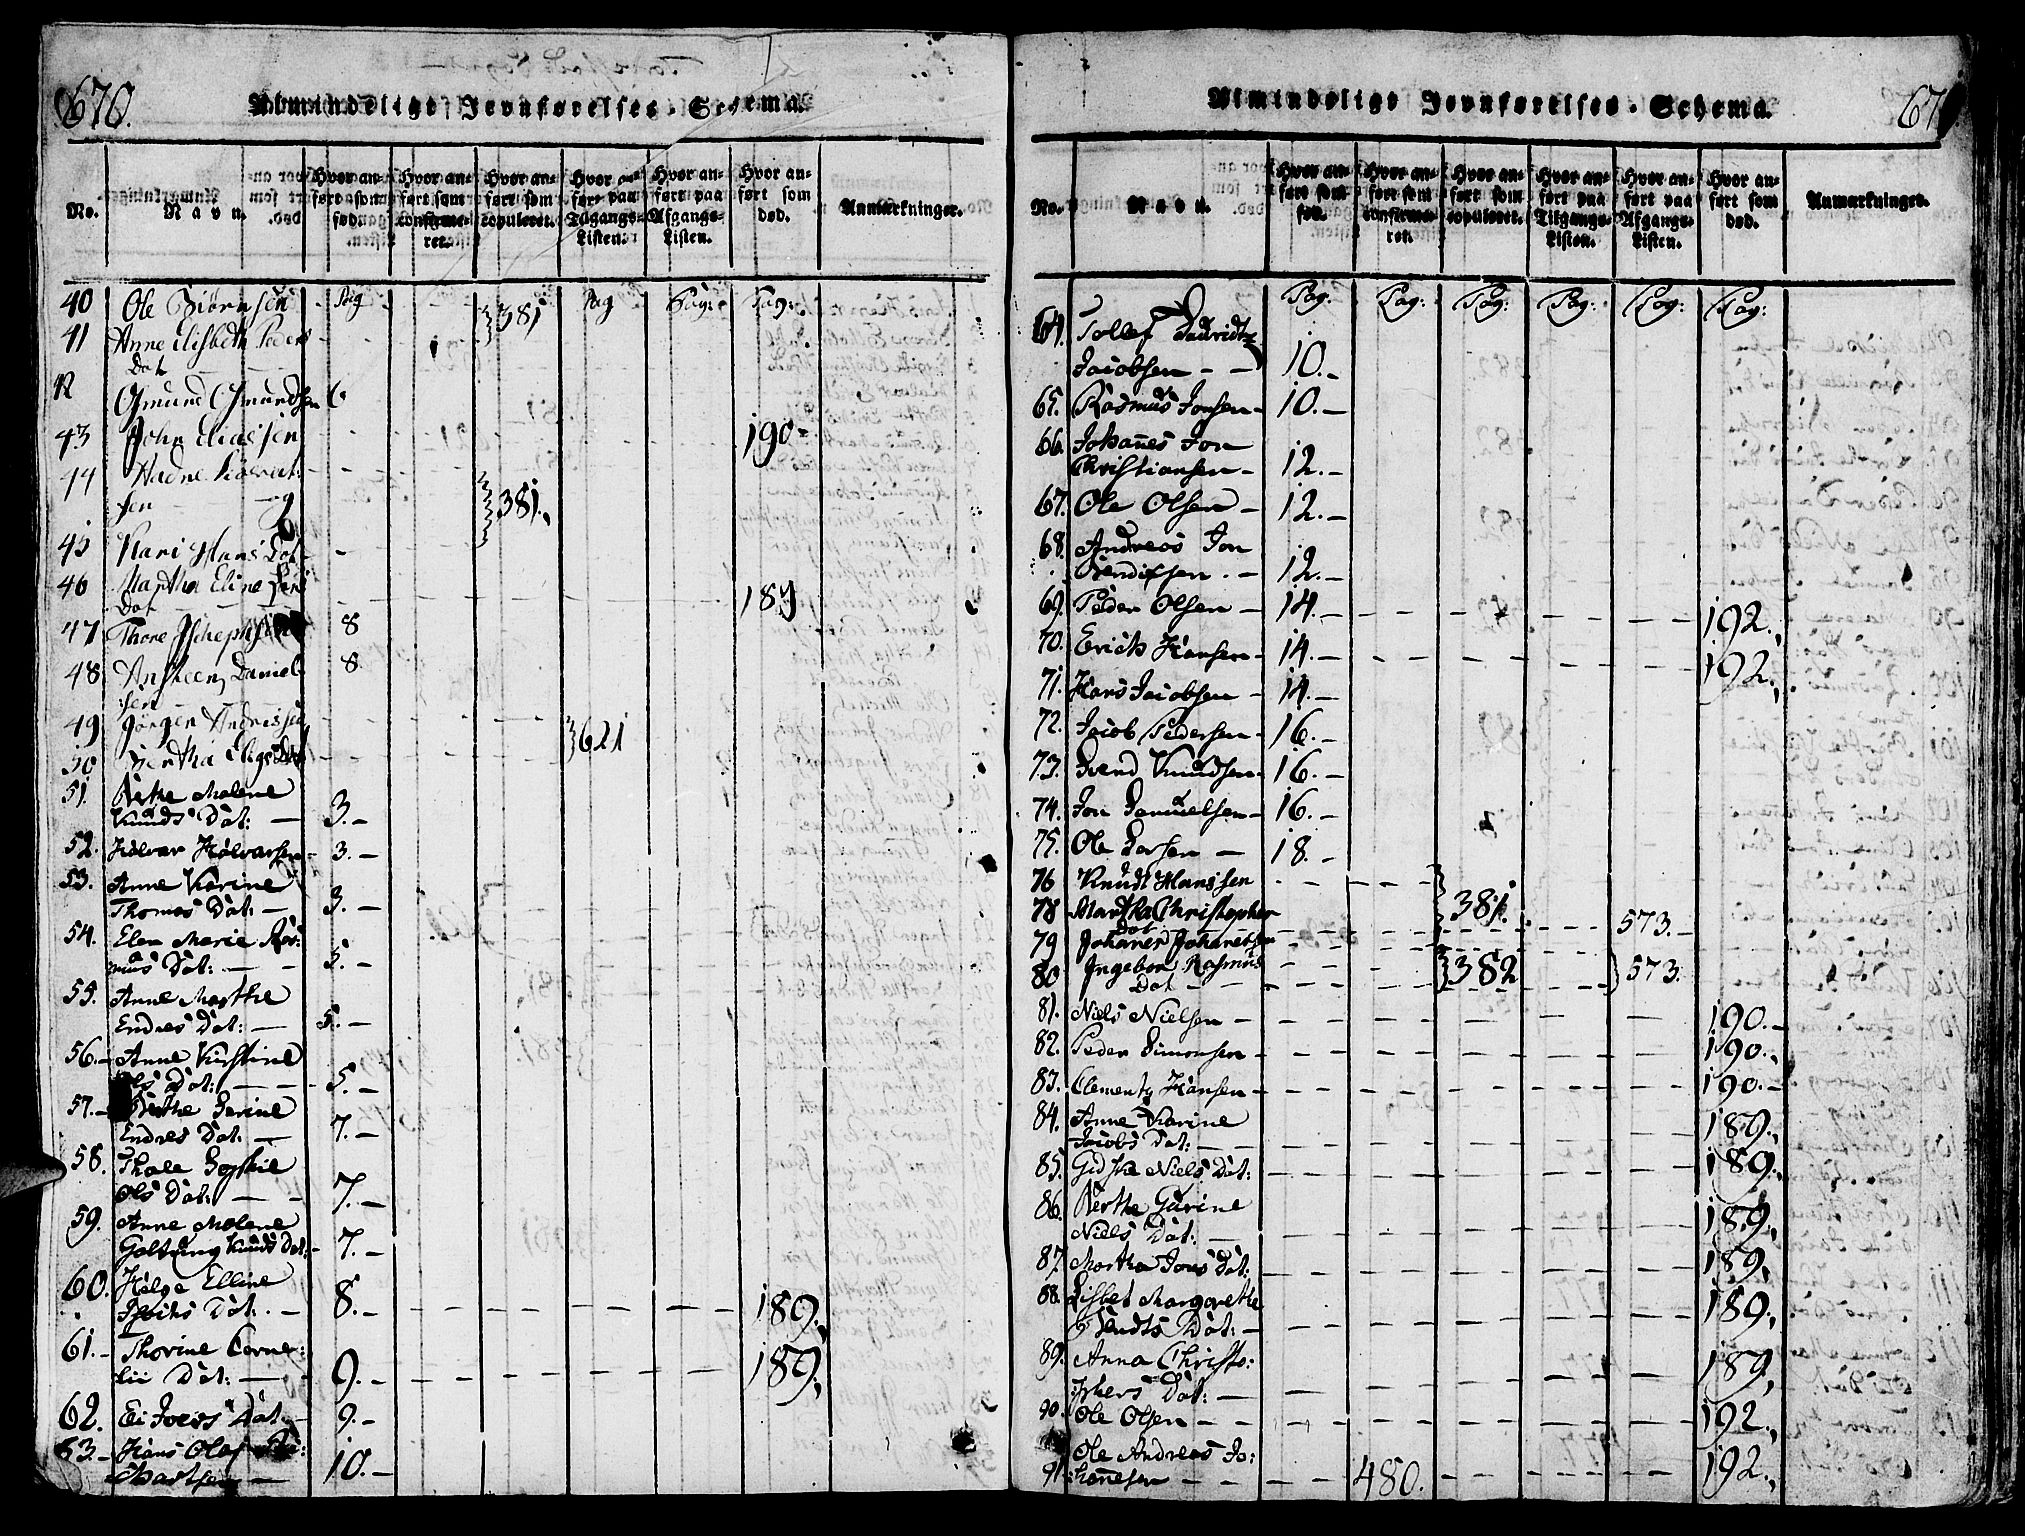 670.
Almindelige Jevnførelses-Schema.
No.
Navn.
Hvor anført som fød.
Hvor anført som confirmeret.
Hvor anført som copuleret.
Hvor anført paa Tilgangs-Listen.
Hvor anført paa Afgangs-Listen.
Hvor anført som død.
Anmærkninger.
40 Ole Biørnsen - Pag 381 Pag Pag: Pag:
41 Anne Elisbeth Peders
Dat
42 Osmund Osmundsen 6.
43 John Eliassen 190
44
sen 381.
45 Kari Hans Dat
46 Martha Eline
Dat 189
47 Thore 8
48 Daniel 8.
sen
49 Jørgen Andriesen
50 Bertha Dat 621
51. Berthe Malene
Knuds Dat: 3.-
52. Halvar Halvarsen 3.-
53. Anne Karine
Thomas Dat: 3.-
54. Elen Marie Ras:
mus Dat: 5.-
55. Anne Marthe
Endres Dat: 5.-
56. Anne Kirstine
Ols Dat: 5.-
57. Berthe Serine
Endres Dat: 7.-
58. Thale Sophie
Ols Dat: 7.-
59. Anne Malene
Knuds Dat: 7.-
60. Helge Elline
Dat. 8.- 189.
61. Thorine Corne:
lii Dat: 9.- 189.
62. Dat. 9.-
63. Hans Olaf
10.-
Almindelige Jevnførelses-Schema.
67
No.
Navn.
Hvor anført som fød.
Hvor anført som confirmeret.
Hvor anført som copuleret.
Hvor anført paa Tilgangs-Listen.
Hvor anført paa Afgangs-Listen.
Hvor anført som død.
Anmærkninger.
Pag. Pag: Pag: Pag: Pag: Pag:
64. Tollef
Jacobsen 10.-
65. Rasmus Jonsen 10.-
66. Johannes Jon
Christiansen 12.-
67. Ole Olsen 12.-
68. Andreas Jon
Bendixsen 12.-
69. Peder Olsen 14.- 192.
70. Erich Hansen 14.- 192.
71. Hans Jacobsen 14.-
72. Jacob Pedersen 16.-
73. Svend Knudsen 16.-
74. Jon Samuelsen 16.-
75. Ole Larsen 18.-
76 Knudt Hanssen
78 Martha Christopher
Dat 381. 573.
79 Johannes Johannesen
80 Ingebor Rasmus
Dat 382 573.
81. Niels Nielsen 190.
82. Peder Simonsen 190.
83. Clements Hansen 190.
84. Anne Karine
Jacobs Dat: 189.
85. Niels Dat: 189.
86. Berthe Gurine
Niels Dat: 189.
87. Martha Jons Dat: 189.
88. Lisbet Margrethe
Dat: 189.
89. Anna Christo:
phers Dat: 189.
90. Ole Olsen 192.
91 Ole Andreas Jo:
hannesen 480. 192.